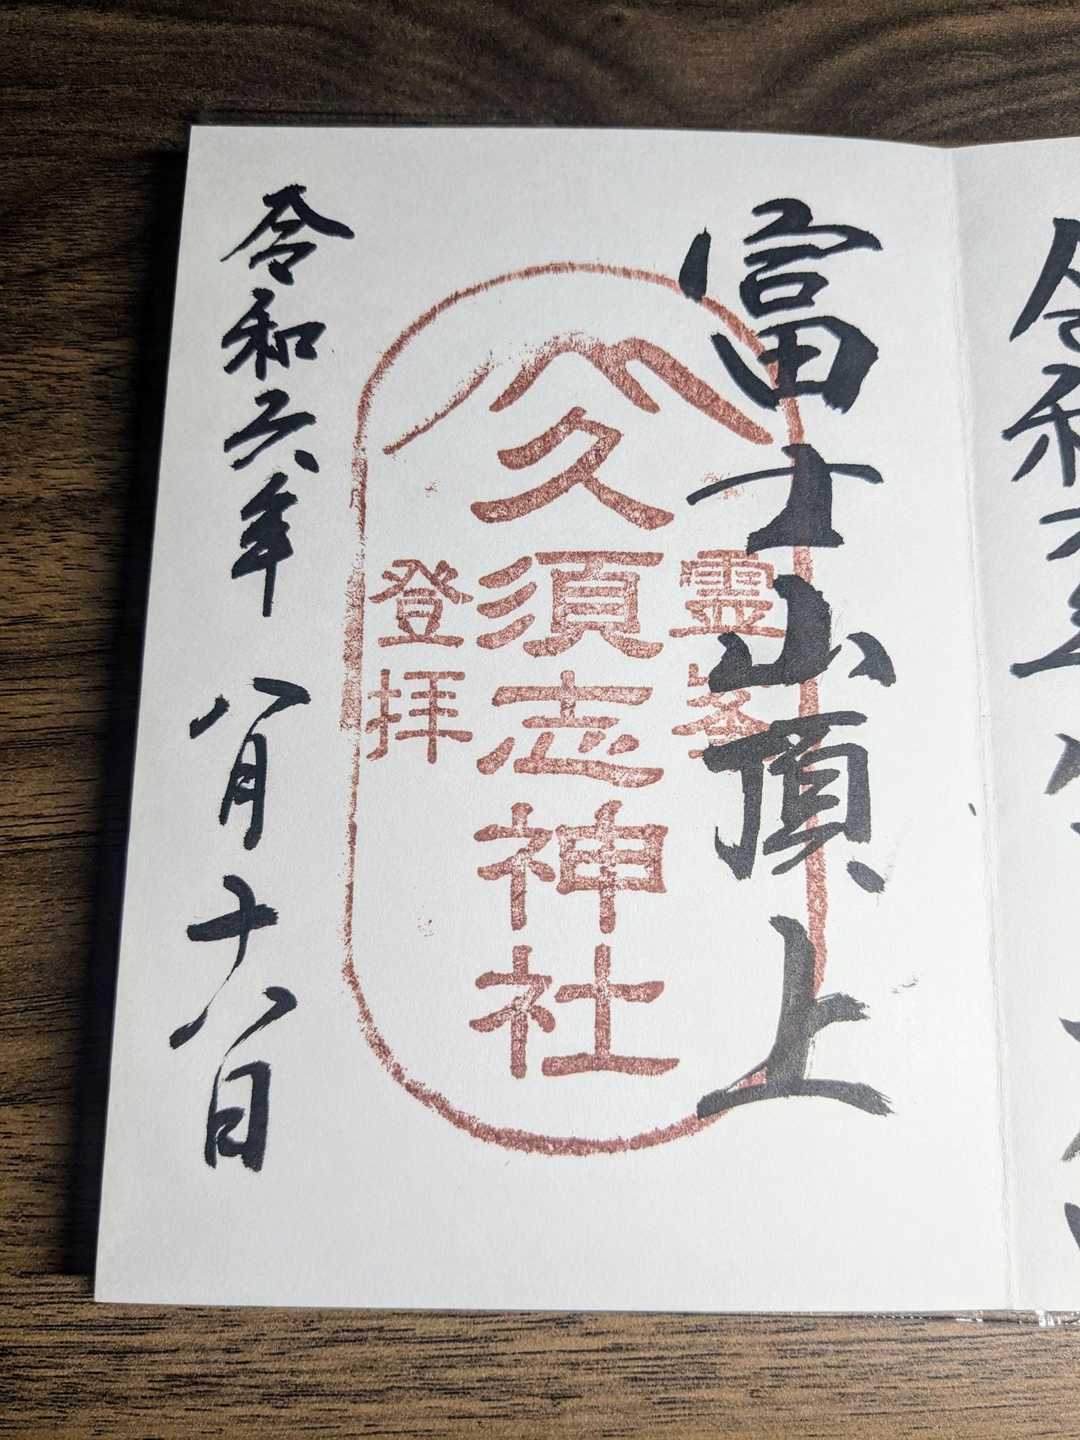 令和六年
富士山頂上
霊峯
久須志神社
登拝
令和六年 八月十八日